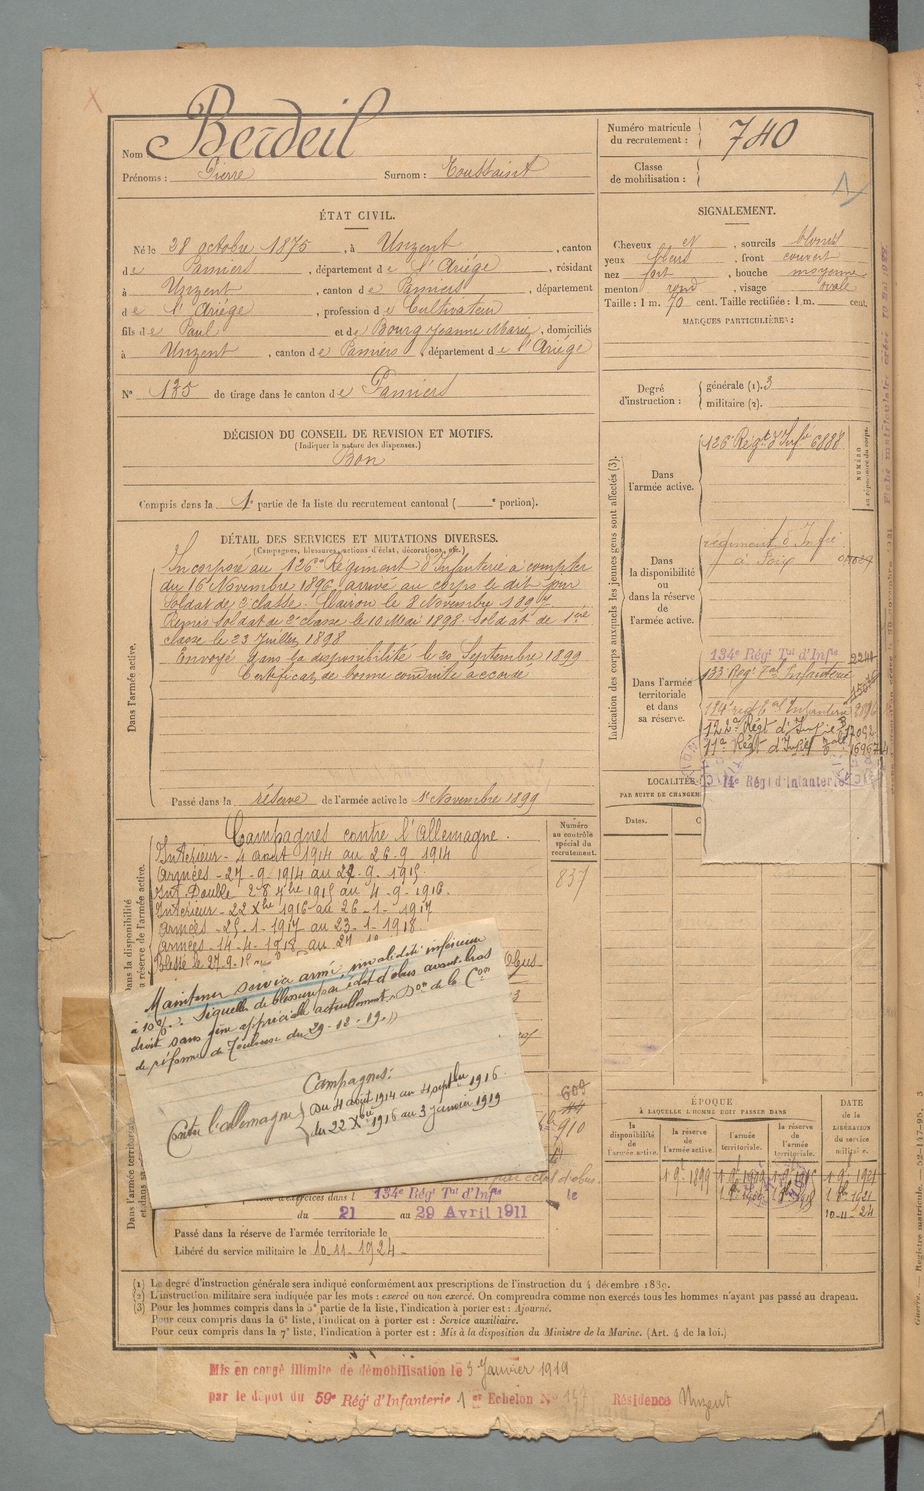 Nom Berdeil
Prénoms : Pierre Surnom : Toussaint
Numéro matricule du recrutement : 740
Classe de mobilisation :
ÉTAT CIVIL.
Né le 28 octobre 1875, à Unzent, canton
de Pamiers, département de l'Ariége, résidant
à Unzent, canton de Pamiers, département
de l'Ariége, profession de Cultivateur
fils de Paul et de Bourg Jeanne Marie, domiciliés
à Unzent, canton de Pamiers, département de l'Ariége
N° 135 de tirage dans le canton de Pamiers
SIGNALEMENT.
Cheveux et, sourcils blonds
yeux bleus, front couvert
nez fort, bouche moyenne
menton rond, visage ovale
Taille : 1 m. 70 cent. Taille rectifiée : 1 m. cent.
MARQUES PARTICULIÈRES :
DÉCISION DU CONSEIL DE REVISION ET MOTIFS.
(Indiquer la nature des dispenses.)
Bon
Compris dans la 1e partie de la liste du recrutement cantonal ( e portion).
Degré d'instruction :
générale (1). 3
militaire (2).
DÉTAIL DES SERVICES ET MUTATIONS DIVERSES.
(Campagnes, blessures, actions d'éclat, décorations, etc.)
Dans l'armée active.
Incorporé au 126e Régiment d'Infanterie à compter
du 16 Novembre 1896, arrivé au corps le dit jour
Soldat de 2e classe. Clairon le 8 Novembre 1897
Remis Soldat de 2e classe le 10 Mai 1898. Soldat de 1ère
classe le 23 Juillet 1898
Envoyé dans la disponibilité le 20 Septembre 1899
Certificat de bonne conduite accordé
Passé dans la réserve de l'armée active le 1r Novembre 1899
Indication des corps auxquels les jeunes gens sont affectés (3).
NUMÉRO
Dans l'armée active.
126e Régt d'Infie 6888
Dans la disponibilité ou dans la réserve de l'armée active.
régiment d'Infie
à Foix
Dans l'armée territoriale et dans sa réserve.
134e Régt Tal d'Infie
133 Régt Tal Infanterie
122e Régt d'Infie
11e Régt d'Infie
14e Régt d'Infanterie
LOCALITÉS
PAR SUITE DE CHANGEM
Dates.
Dans la disponibilité
Campagnes contre l'Allemagne.
Intérieur - 4 août 1914 au 26-9-1914
Armées - 27-9-1914 au 22-9-1915
Intérieur - 22 Xbre 1916 au 26-1-1917
Armées - 25-1-1917 au 23-1-1918
Armées - 14-4-1918 au 27
Blessé le 27.9.18
Numéro au contrôle spécial du recrutement.
837
Maintenu service armé, invalidité inférieure
à 10%. Séquelles de blessure par éclat d'obus avant-bras
droit sans gêne appréciable actuellement. Don de la Con
de réforme de Toulouse du 29-12-19. »
Campagnes:
Contre l'allemagne
Du 4 août 1914 au 4 septbre 1916
du 22 Xbre 1916 au 3 janvier 1919
609
910
par éclat d'obus
le
Dans l'armée territoriale
134e Régt Tal d'Infie
du 21 au 29 Avril 1911
Passé dans la réserve de l'armée territoriale le
Libéré du service militaire le 10.11.1924
ÉPOQUE
À LAQUELLE L'HOMME DOIT PASSER DANS
la disponibilité de l'armée active.
la réserve de l'armée active.
l'armée territoriale.
la réserve de l'armée territoriale.
DATE de la LIBÉRATION du service militaire.
10-11-24
(1) Le degré d'instruction générale sera indiqué conformément aux prescriptions de l'instruction du 4 décembre 1889.
(2) L'instruction militaire sera indiquée par les mots : exercé ou non exercé. On comprendra comme non exercés tous les hommes n'ayant pas passé au drapeau.
(3) Pour les hommes compris dans la 5e partie de la liste, l'indication à porter est : Ajourné.
Pour ceux compris dans la 6e liste, l'indication à porter est : Service auxiliaire.
Pour ceux compris dans la 7e liste, l'indication à porter est : Mis à la disposition du Ministre de la Marine. (Art. 4 de la loi.)
Mis en congé illimité de démobilisation le 3 Janvier 1919
par le dépôt du 59e Régt d'Infanterie 1er Echelon N° 147 Résidence Unzent